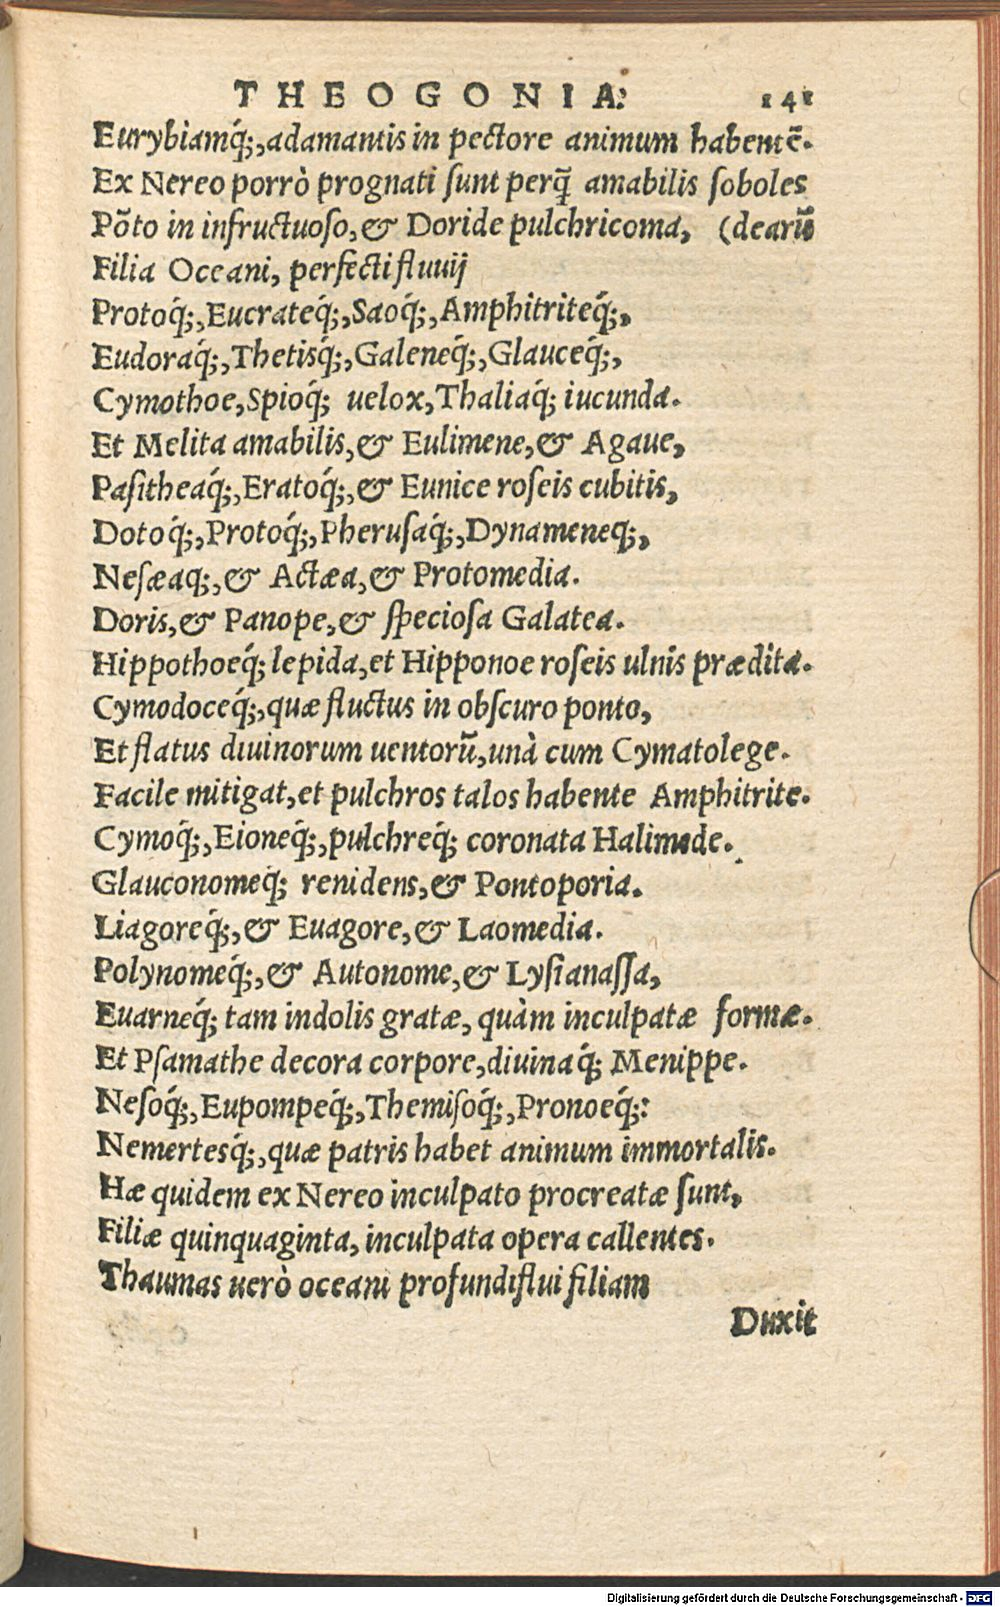 THEOGONIA. 141
Eurybiamq́;, adamantis in pectore animum habentē.
Ex Nereo porrò prognati sunt perq̃ amabilis soboles
Põto in infructuoso, & Doride pulchricoma, (dearũ
Filia Oceani, perfecti fluuij
Protoq́;, Eucrateq́;, Saoq́;, Amphitriteq́;,
Eudoraq́;, Thetisq́;, Galeneq́;, Glauceq́;,
Cymothoe, Spioq́; uelox, Thaliaq́; iucunda.
Et Melita amabilis, & Eulimene, & Agaue,
Pasitheaq́;, Eratoq́;, & Eunice roseis cubitis,
Dotoq́;, Protoq́;, Pherusaq́;, Dynameneq́;,
Nesæaq;, & Actæa, & Protomedia.
Doris, & Panope, & speciosa Galatea.
Hippothoeq́; lepida, et Hipponoe roseis ulnis prædita.
Cymodoceq́;, quæ fluctus in obscuro ponto,
Et flatus diuinorum uentorũ, unà cum Cymatolege.
Facile mitigat, et pulchros talos habente Amphitrite.
Cymoq́;, Eioneq́;, pulchreq́; coronata Halimede.
Glauconomeq́; renidens, & Pontoporia.
Liagoreq́;, & Euagore, & Laomedia.
Polynomeq́;, & Autonome, & Lysianassa,
Euarneq́; tam indolis gratæ, quàm inculpatæ formæ.
Et Psamathe decora corpore, diuinaq́; Menippe.
Nesoq́;, Eupompeq́;, Themisoq́;, Pronoeq́;:
Nemertesq́;, quæ patris habet animum immortalis.
Hæ quidem ex Nereo inculpato procreatæ sunt,
Filiæ quinquaginta, inculpata opera callentes.
Thaumas uerò oceani profundiflui filiam
Duxit
Digitalisierung gefördert durch die Deutsche Forschungsgemeinschaft - DFG